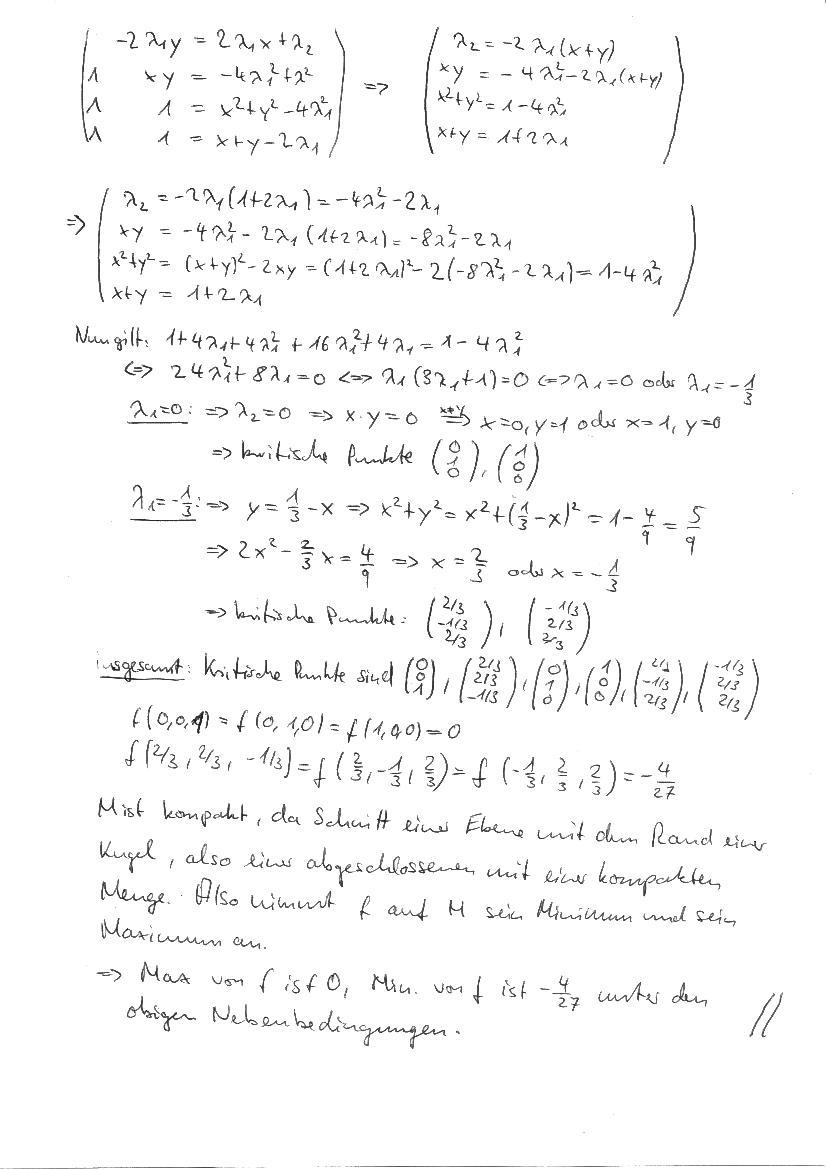 -2λ₁y = 2λ₁x+λ₂
∧ xy = -4λ₁²+λ²
∧ 1 = x²+y²-4λ₁²
∧ 1 = x+y-2λ₁
=> λ₂ = -2λ₁(x+y)
xy = -4λ₁²-2λ₁(x+y)
x²+y² = 1-4λ₁²
x+y = 1+2λ₁
=> λ₂ = -2λ₁(1+2λ₁) = -4λ₁²-2λ₁
xy = -4λ₁²-2λ₁(1+2λ₁) = -8λ₁²-2λ₁
x²+y² = (x+y)²-2xy = (1+2λ₁)²-2(-8λ₁²-2λ₁) = 1-4λ₁²
x+y = 1+2λ₁
Nun gilt: 1+4λ₁+4λ₁²+16λ₁²+4λ₁ = 1-4λ₁²
<=> 24λ₁²+8λ₁=0 <=> λ₁(3λ₁+1)=0 <=> λ₁=0 oder λ₁=-1/3
λ₁=0: => λ₂=0 => x·y=0 => x=0, y=1 oder x=1, y=0
=> kritische Punkte (0 1 0), (1 0 0)
λ₁=-1/3: => y=1/3-x => x²+y² = x²+(1/3-x)² = 1-4/9 = 5/9
=> 2x²-2/3x = 4/9 => x=2/3 oder x=-1/3
=> kritische Punkte: (2/3 -1/3 2/3), (-1/3 2/3 2/3)
insgesamt: Kritische Punkte sind (0 0 1), (2/3 2/3 -1/3), (0 1 0), (1 0 0), (2/3 -1/3 2/3), (-1/3 2/3 2/3)
f(0,0,1) = f(0,1,0) = f(1,0,0) = 0
f(2/3, 2/3, -1/3) = f(2/3, -1/3, 2/3) = f(-1/3, 2/3, 2/3) = -4/27
M ist kompakt, da Schnitt einer Ebene mit dem Rand einer
Kugel, also einer abgeschlossenen mit einer kompakten
Menge. Also nimmt f auf M sein Minimum und sein
Maximum an.
=> Max von f ist 0, Min. von f ist -4/27 unter den
obigen Nebenbedingungen. //